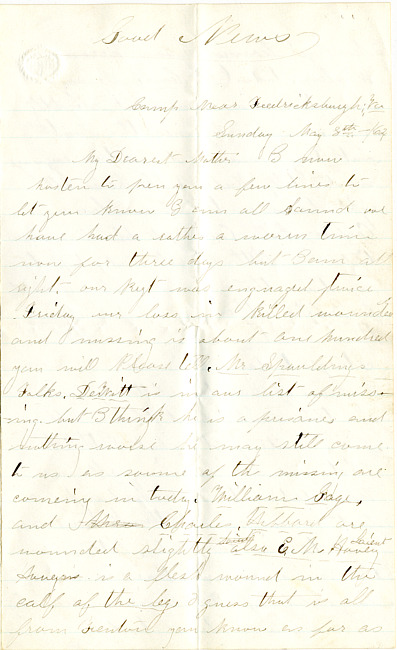 Good News
Camp Near Fredricksburgh, Va
Sunday May 8th /64
My Dearest Mother I now
hasten to pen you a few lines to
let you know I am all sound we
have had a rather a worm time
now for three days but I am all
right. our Regt was engaged twice
Friday our loss in killed wounded
and missing is about one hundred
you will please tell Mr Spauldings
folks. Dewitt is in our list of miss-
ing. but I think he is a prisoner and
nothing worse he may still come
to us as some of the missing are
comeing in today. William Gage,
and Charles Hibbard are
wounded slightly also E. M. Hovey
is a flesh wound in the
calf of the leg I guess that is all
from you know as far as